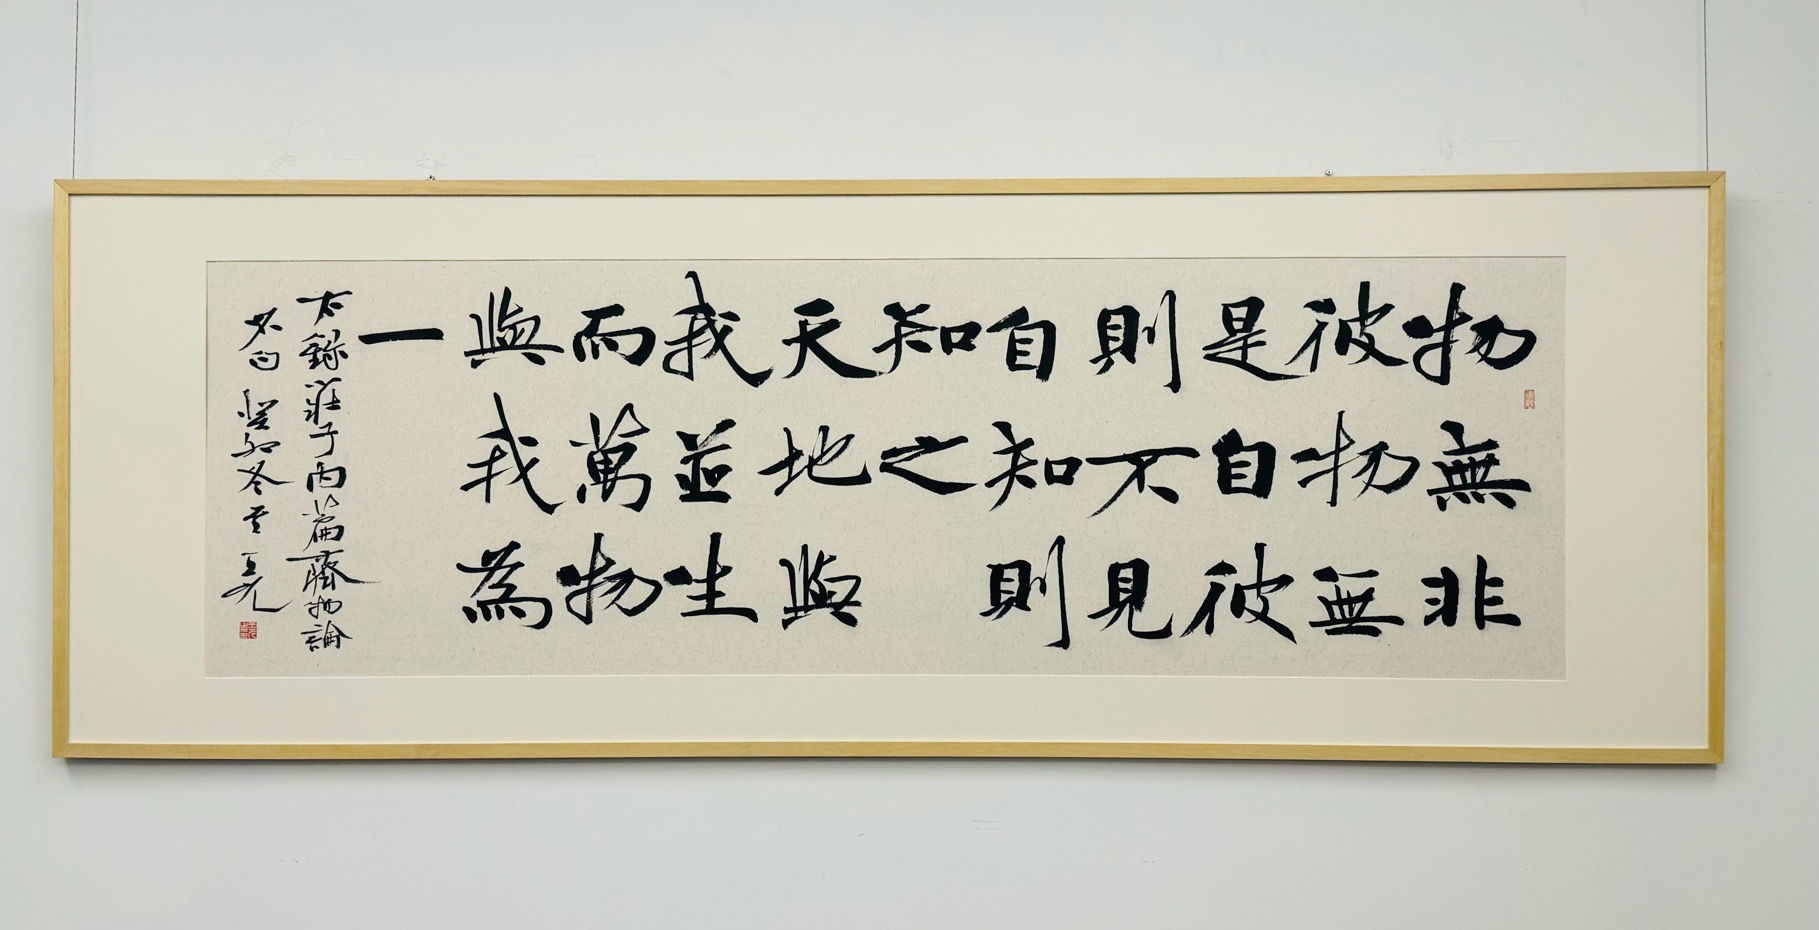 物無非
彼物無
是自彼
則不見
自知則
知之
天地與
我並生
而萬物
與我為
一
右錄莊子內篇齊物論
名句 癸卯冬